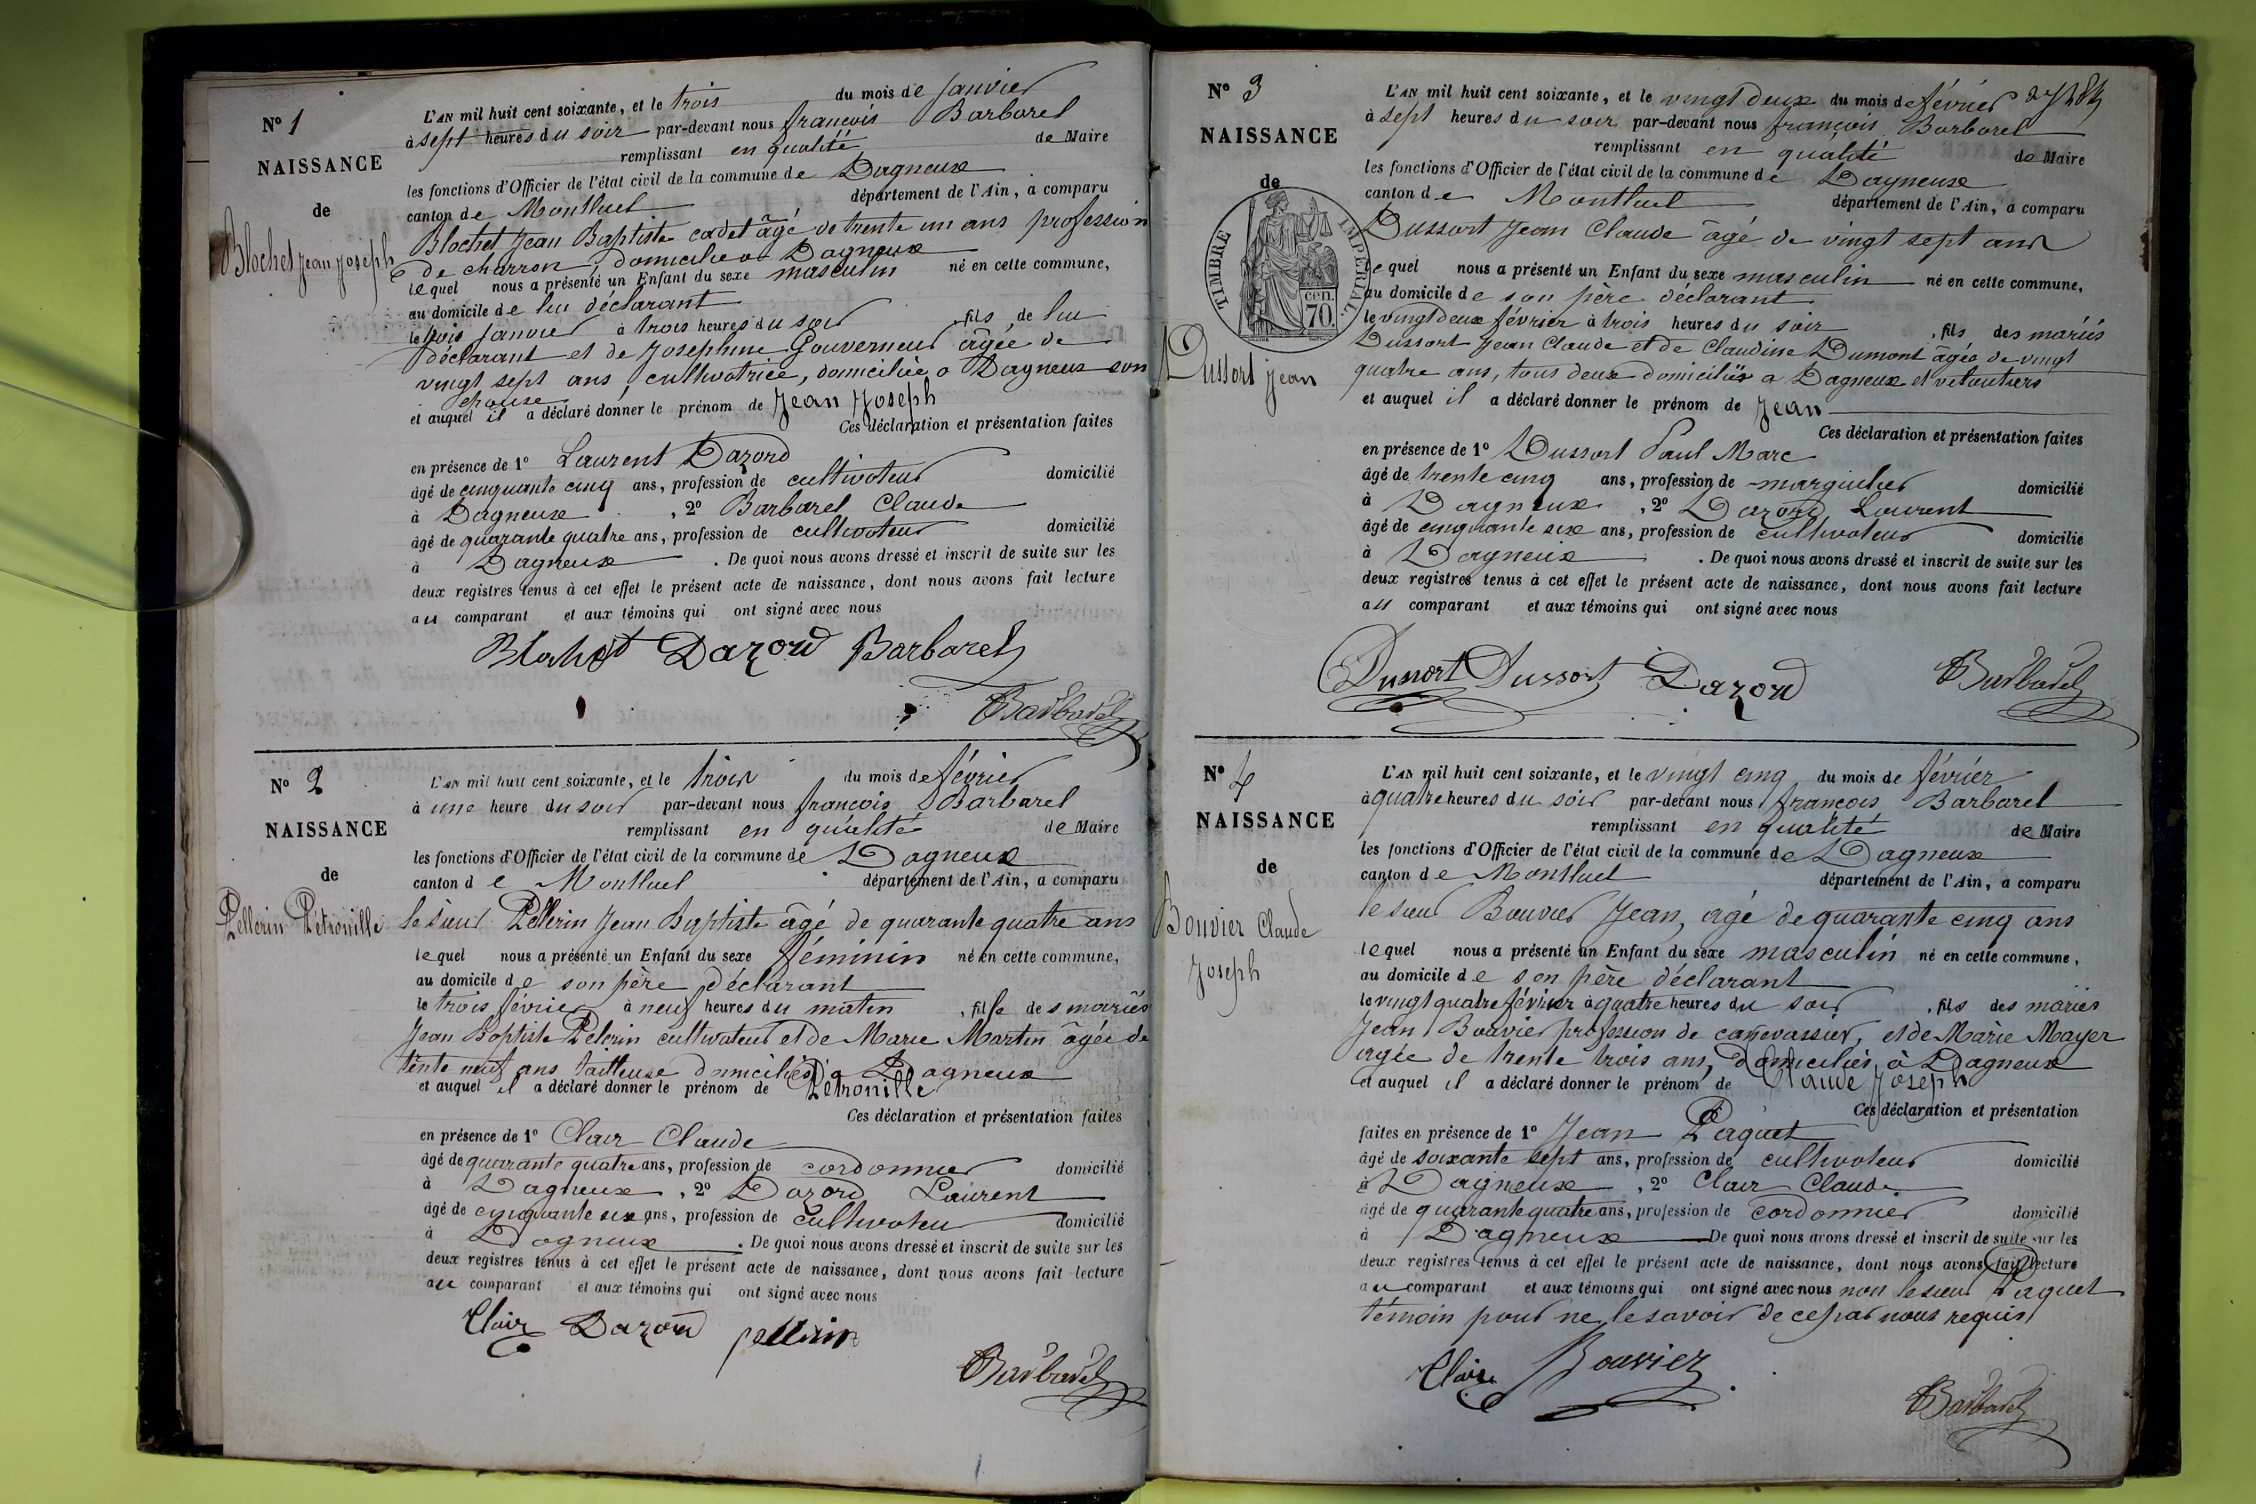 N° 1
NAISSANCE
de
Blochet Jean Joseph
L'AN mil huit cent soixante, et le trois du mois de janvier
à sept heures du soir par-devant nous françois Barbarel
remplissant en qualité de Maire
les fonctions d'Officier de l'état civil de la commune de Dagneux
canton de Montluel département de l'Ain, a comparu
Blochet Jean Baptiste cadet âgé de trente un ans profession
de charron, domicilié a Dagneux
lequel nous a présenté un Enfant du sexe masculin né en cette commune,
au domicile de lui déclarant
le trois janvier à trois heures du soir , fils de lui
déclarant et de Josephine Gouverneur âgée de
vingt sept ans, cultivatrice, domiciliée a Dagneux son
épouse
et auquel il a déclaré donner le prénom de Jean Joseph
Ces déclaration et présentation faites
en présence de 1° Laurent Dazord
âgé de cinquante cinq ans, profession de cultivateur domicilié
à Dagneux , 2° Barbarel Claude
âgé de quarante quatre ans, profession de cultivateur domicilié
à Dagneux . De quoi nous avons dressé et inscrit de suite sur les
deux registres tenus à cet effet le présent acte de naissance, dont nous avons fait lecture
au comparant et aux témoins qui ont signé avec nous
Blochet Dazord Barbarel
Barbarel
N° 2
NAISSANCE
de
Pellerin Pétronille
L'AN mil huit cent soixante, et le trois du mois de février
à une heure du soir par-devant nous françois Barbarel
remplissant en qualité de Maire
les fonctions d'Officier de l'état civil de la commune de Dagneux
canton de Montluel département de l'Ain, a comparu
le sieur Pellerin Jean Baptiste âgé de quarante quatre ans
lequel nous a présenté un Enfant du sexe féminin né en cette commune,
au domicile de son père déclarant
le trois février à neuf heures du matin , fille des mariés
Jean Baptiste Pelerin cultivateur et de Marie Martin âgée de
trente neuf ans tailleuse domiciliés a Dagneux
et auquel il a déclaré donner le prénom de Pétronille
Ces déclaration et présentation faites
en présence de 1° Clair Claude
âgé de quarante quatre ans, profession de cordonnier domicilié
à Dagneux , 2° Dazord Laurent
âgé de cinquante six ans, profession de cultivateur domicilié
à Dagneux . De quoi nous avons dressé et inscrit de suite sur les
deux registres tenus à cet effet le présent acte de naissance, dont nous avons fait lecture
au comparant et aux témoins qui ont signé avec nous
Clair Dazord pellerin
Barbarel
N° 3
NAISSANCE
de
TIMBRE IMPÉRIAL
cen.
70.
Dussort Jean
L'AN mil huit cent soixante, et le vingt deux du mois de février
à sept heures du soir par-devant nous françois Barbarel
remplissant en qualité de Maire
les fonctions d'Officier de l'état civil de la commune de Dagneux
canton de Montluel département de l'Ain, a comparu
Dussort Jean Claude âgé de vingt sept ans
lequel nous a présenté un Enfant du sexe masculin né en cette commune,
au domicile de son père déclarant
le vingt deux février à trois heures du soir , fils des mariés
Dussort Jean Claude et de Claudine Dumont âgée de vingt
quatre ans, tous deux domiciliés a Dagneux et
et auquel il a déclaré donner le prénom de Jean
Ces déclaration et présentation faites
en présence de 1° Dussort Paul Marc
âgé de trente cinq ans, profession de marguilier domicilié
à Dagneux , 2° Dazord Laurent
âgé de cinquante six ans, profession de cultivateur domicilié
à Dagneux . De quoi nous avons dressé et inscrit de suite sur les
deux registres tenus à cet effet le présent acte de naissance, dont nous avons fait lecture
au comparant et aux témoins qui ont signé avec nous
Dussort Dussort Dazord Barbarel
N° 4
NAISSANCE
de
Bouvier Claude
Joseph
L'AN mil huit cent soixante, et le vingt cinq du mois de février
à quatre heures du soir par-devant nous françois Barbarel
remplissant en qualité de Maire
les fonctions d'Officier de l'état civil de la commune de Dagneux
canton de Montluel département de l'Ain, a comparu
le sieur Bouvier Jean, agé de quarante cinq ans
lequel nous a présenté un Enfant du sexe masculin né en cette commune,
au domicile de son père déclarant
le vingt quatre février à quatre heures du soir , fils des mariés
Jean Bouvier profession de canevassier, et de Marie Mayer
agée de trente trois ans, domiciliés à Dagneux
et auquel il a déclaré donner le prénom de Claude Joseph
Ces déclaration et présentation
faites en présence de 1° Jean Paquet
âgé de soixante sept ans, profession de cultivateur domicilié
à Dagneux , 2° Clair Claude
âgé de quarante quatre ans, profession de cordonnier domicilié
à Dagneux De quoi nous avons dressé et inscrit de suite sur les
deux registres tenus à cet effet le présent acte de naissance, dont nous avons fait lecture
au comparant et aux témoins qui ont signé avec nous non le sieur Paquet
témoin pour ne le savoir de ce par nous requis
Clair Bouvier
Barbarel